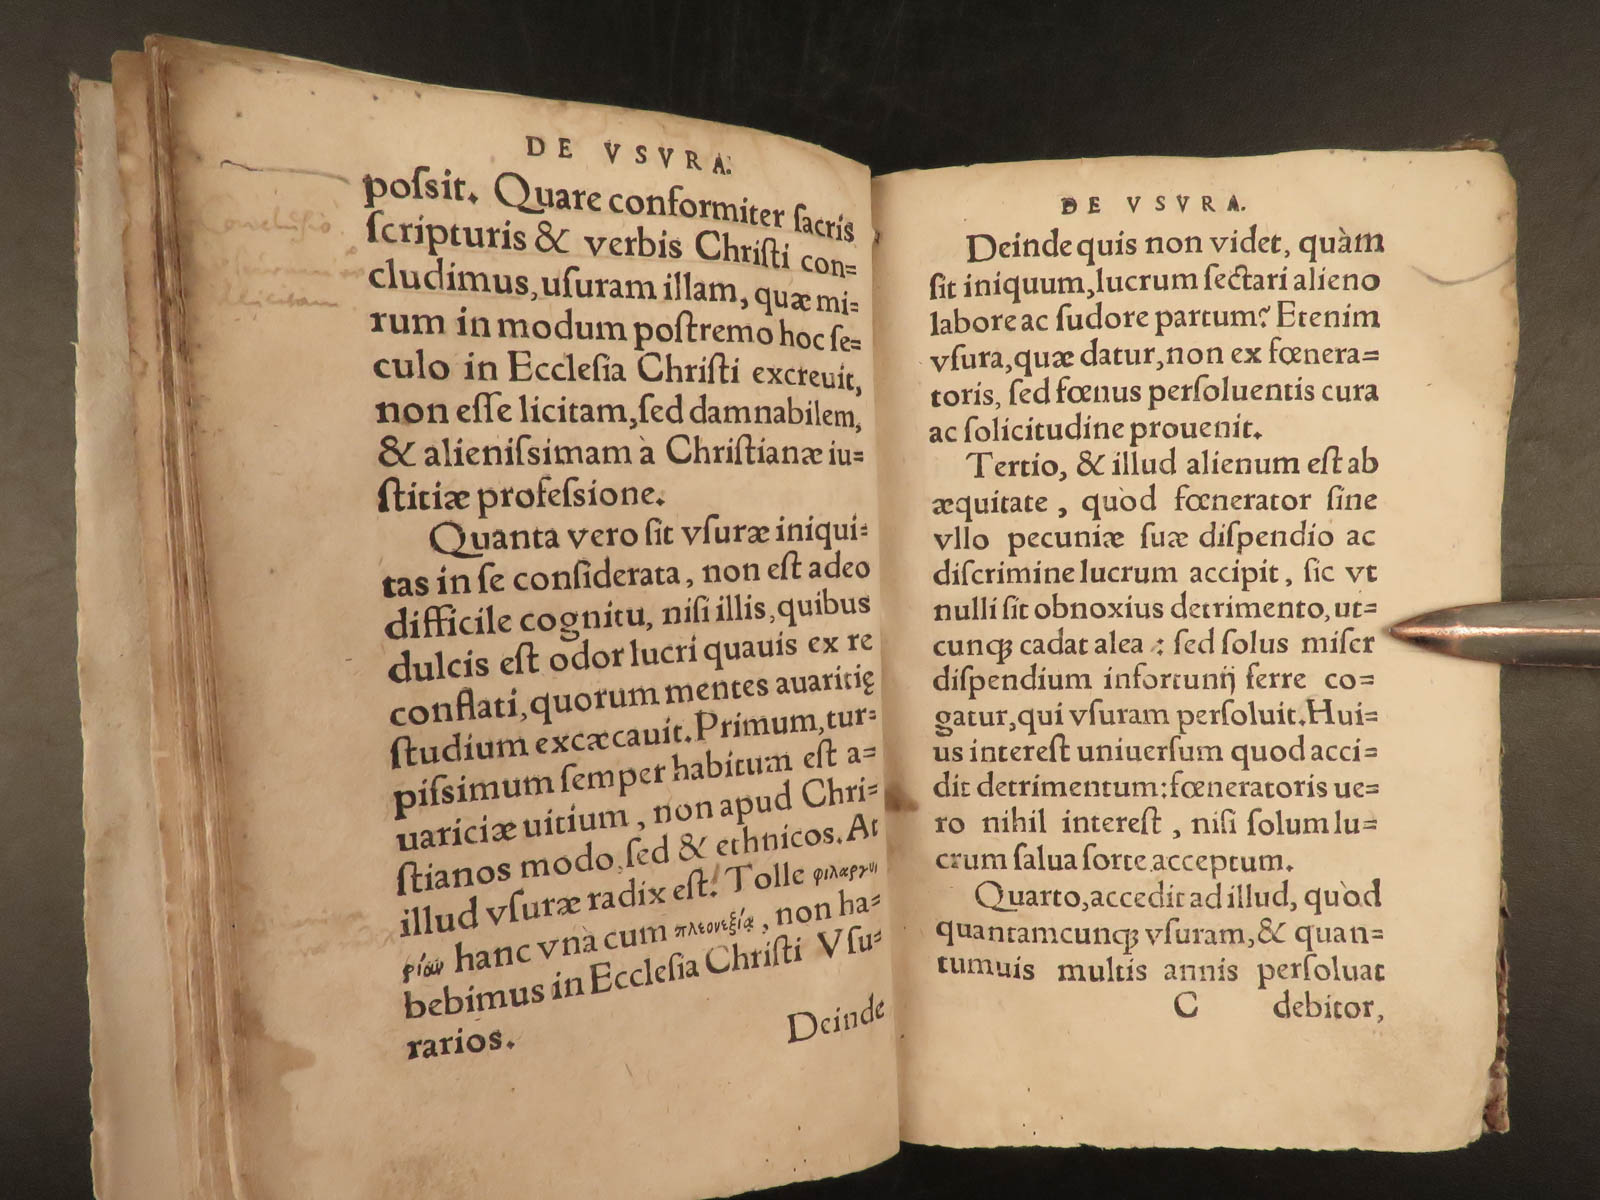 DE VSVRA.
poſsit. Quare conformiter ſacris
ſcripturis & verbis Chriſti con=
cludimus, uſuram illam, quæ mi=
rum in modum poſtremo hoc ſe=
culo in Eccleſia Chriſti excreuit,
non eſſe licitam, ſed damnabilem,
& alieniſsimam à Chriſtianæ iu=
ſtitiæ profeſsione.
Quanta vero ſit vſuræ iniqui=
tas in ſe conſiderata, non eſt adeo
difficile cognitu, niſi illis, quibus
dulcis eſt odor lucri quauis ex re
conflati, quorum mentes auaritię
ſtudium excæcauit. Primum, tur=
piſsimum ſemper habitum eſt a=
uariciæ uitium, non apud Chri=
ſtianos modo, ſed & ethnicos. At
illud vſuræ radix eſt. Tolle φιλαργυ
ρίαν hanc vnà cum πλεονεξίᾳ, non ha=
bebimus in Eccleſia Chriſti Vſu=
rarios.
Deinde
Concluſio
illicitam
DE VSVRA.
Deinde quis non videt, quàm
ſit iniquum, lucrum ſectari alieno
labore ac ſudore partum? Etenim
vſura, quæ datur, non ex fœnera=
toris, ſed fœnus perſoluentis cura
ac ſolicitudine prouenit.
Tertio, & illud alienum eſt ab
æquitate, quòd fœnerator ſine
vllo pecuniæ ſuæ diſpendio ac
diſcrimine lucrum accipit, ſic vt
nulli ſit obnoxius detrimento, ut=
cunqꝫ cadat alea: ſed ſolus miſer
diſpendium infortunij ferre co=
gatur, qui vſuram perſoluit. Hui=
us intereſt uniuerſum quod acci=
dit detrimentum: fœneratoris ue=
ro nihil intereſt, niſi ſolum lu=
crum ſalua ſorte acceptum.
Quarto, accedit ad illud, quòd
quantamcunqꝫ vſuram, & quan=
tumuis multis annis perſoluat
C debitor,